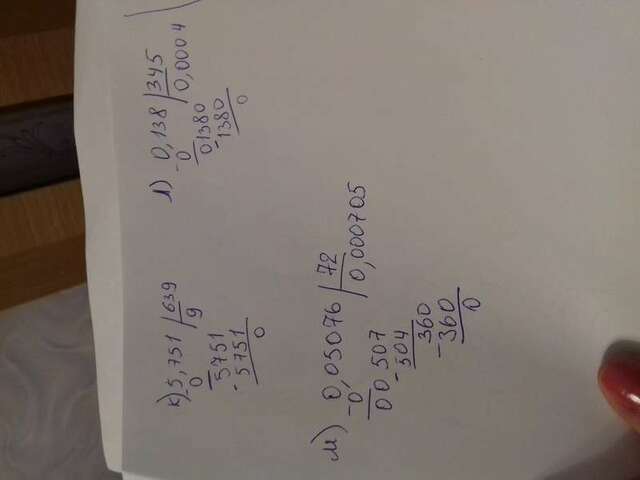 к) 5,751 | 639
- 0 9
5751
- 5751
0
л) 0,138 | 345
- 0 0,0004
01380
- 1380
0
м) 0,05076 | 72
- 0 0,000705
00 507
- 504
360
- 360
0